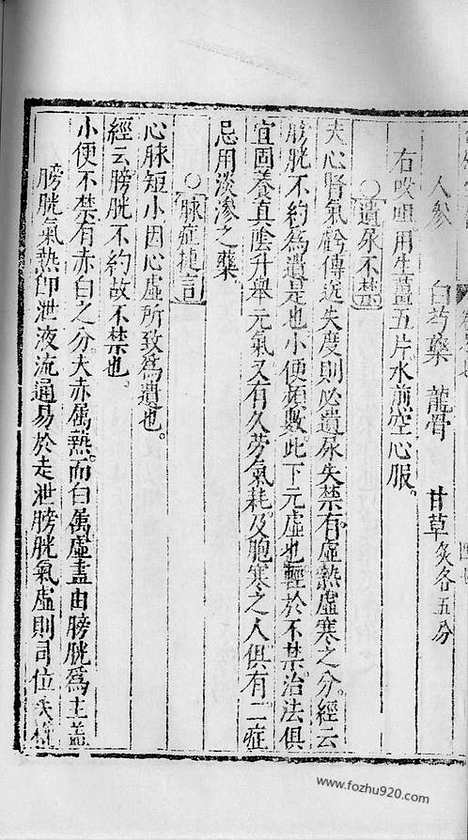 人參　白芍藥　龍骨　甘草炙各五分
右㕮咀用生薑五片水煎空心服。
○遺尿不禁
夫心腎氣虧傳送失度則必遺尿失禁有虛熱虛寒之分。經云
膀胱不約為遺是也小便頻數此下元虛也輕於不禁治法俱
宜固養真陰升舉元氣又有久勞氣耗及胞寒之人俱有二症
忌用淡滲之藥
○脉症捷司
心脉短小因心虛所致為遺也。
經云膀胱不約故不禁也。
小便不禁有赤白之分夫赤屬熱。而白屬虛盖由膀胱為主盖
膀胱氣熱即泄液流通易於走泄膀胱氣虛則司位失
www.fozhu920.com